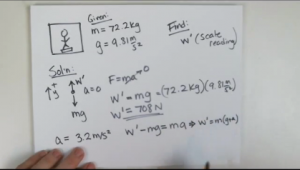 Given:
m = 72.2kg
g = 9.81 m/s²
Find:
w' (scale reading)
Sol'n:
+
y
w'
a=0
mg
F=ma→0
w' - mg = (72.2kg)(9.81 m/s²)
w' = 708 N
a = 3.2 m/s²
w' - mg = ma ⇒ w' = m(g+a)